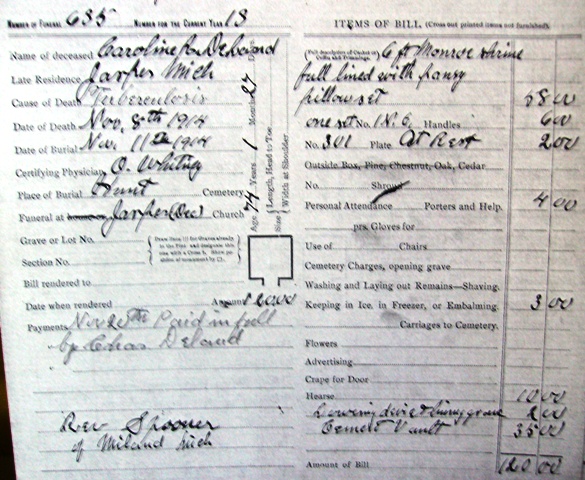 NUMBER OF FUNERAL 635 NUMBER FOR THE CURRENT YEAR 13
Name of deceased Caroline Deland
Late Residence Jasper Mich
Cause of Death Tuberculosis
Date of Death Nov. 8th 1914
Date of Burial Nov. 11th 1914
Certifying Physician O. Whitney
Place of Burial Cemetery
Funeral at house or Jasper Church
Grave or Lot No.
Section No.
Bill rendered to
Date when rendered Amount 120.00
Payments Nov 20th Paid in full
by Chas Deland
Rev Spooner
of Miland Mich
Age, 74 Years 1 Months 27
Size { Length, Head to Toe
Width at Shoulder
ITEMS OF BILL (Cross out printed items not furnished)
6 ft Monroe shrine
full lined with pansy
pillow set 58 00
one set No. 1 N. 6. Handles 6 00
No. 301 Plate At Rest 2 00
Outside Box, Pine, Chestnut, Oak, Cedar
No. Shroud
Personal Attendance Porters and Help. 4 00
prs. Gloves for
Use of Chairs
Cemetery Charges, opening grave
Washing and Laying out Remains—Shaving.
Keeping in Ice, in Freezer, or Embalming. 3 00
Carriages to Cemetery.
Flowers
Advertising.
Crape for Door
Hearse 10 00
Lowering device & lining grave 2 00
Cement Vault 35 00
Amount of Bill 120 00